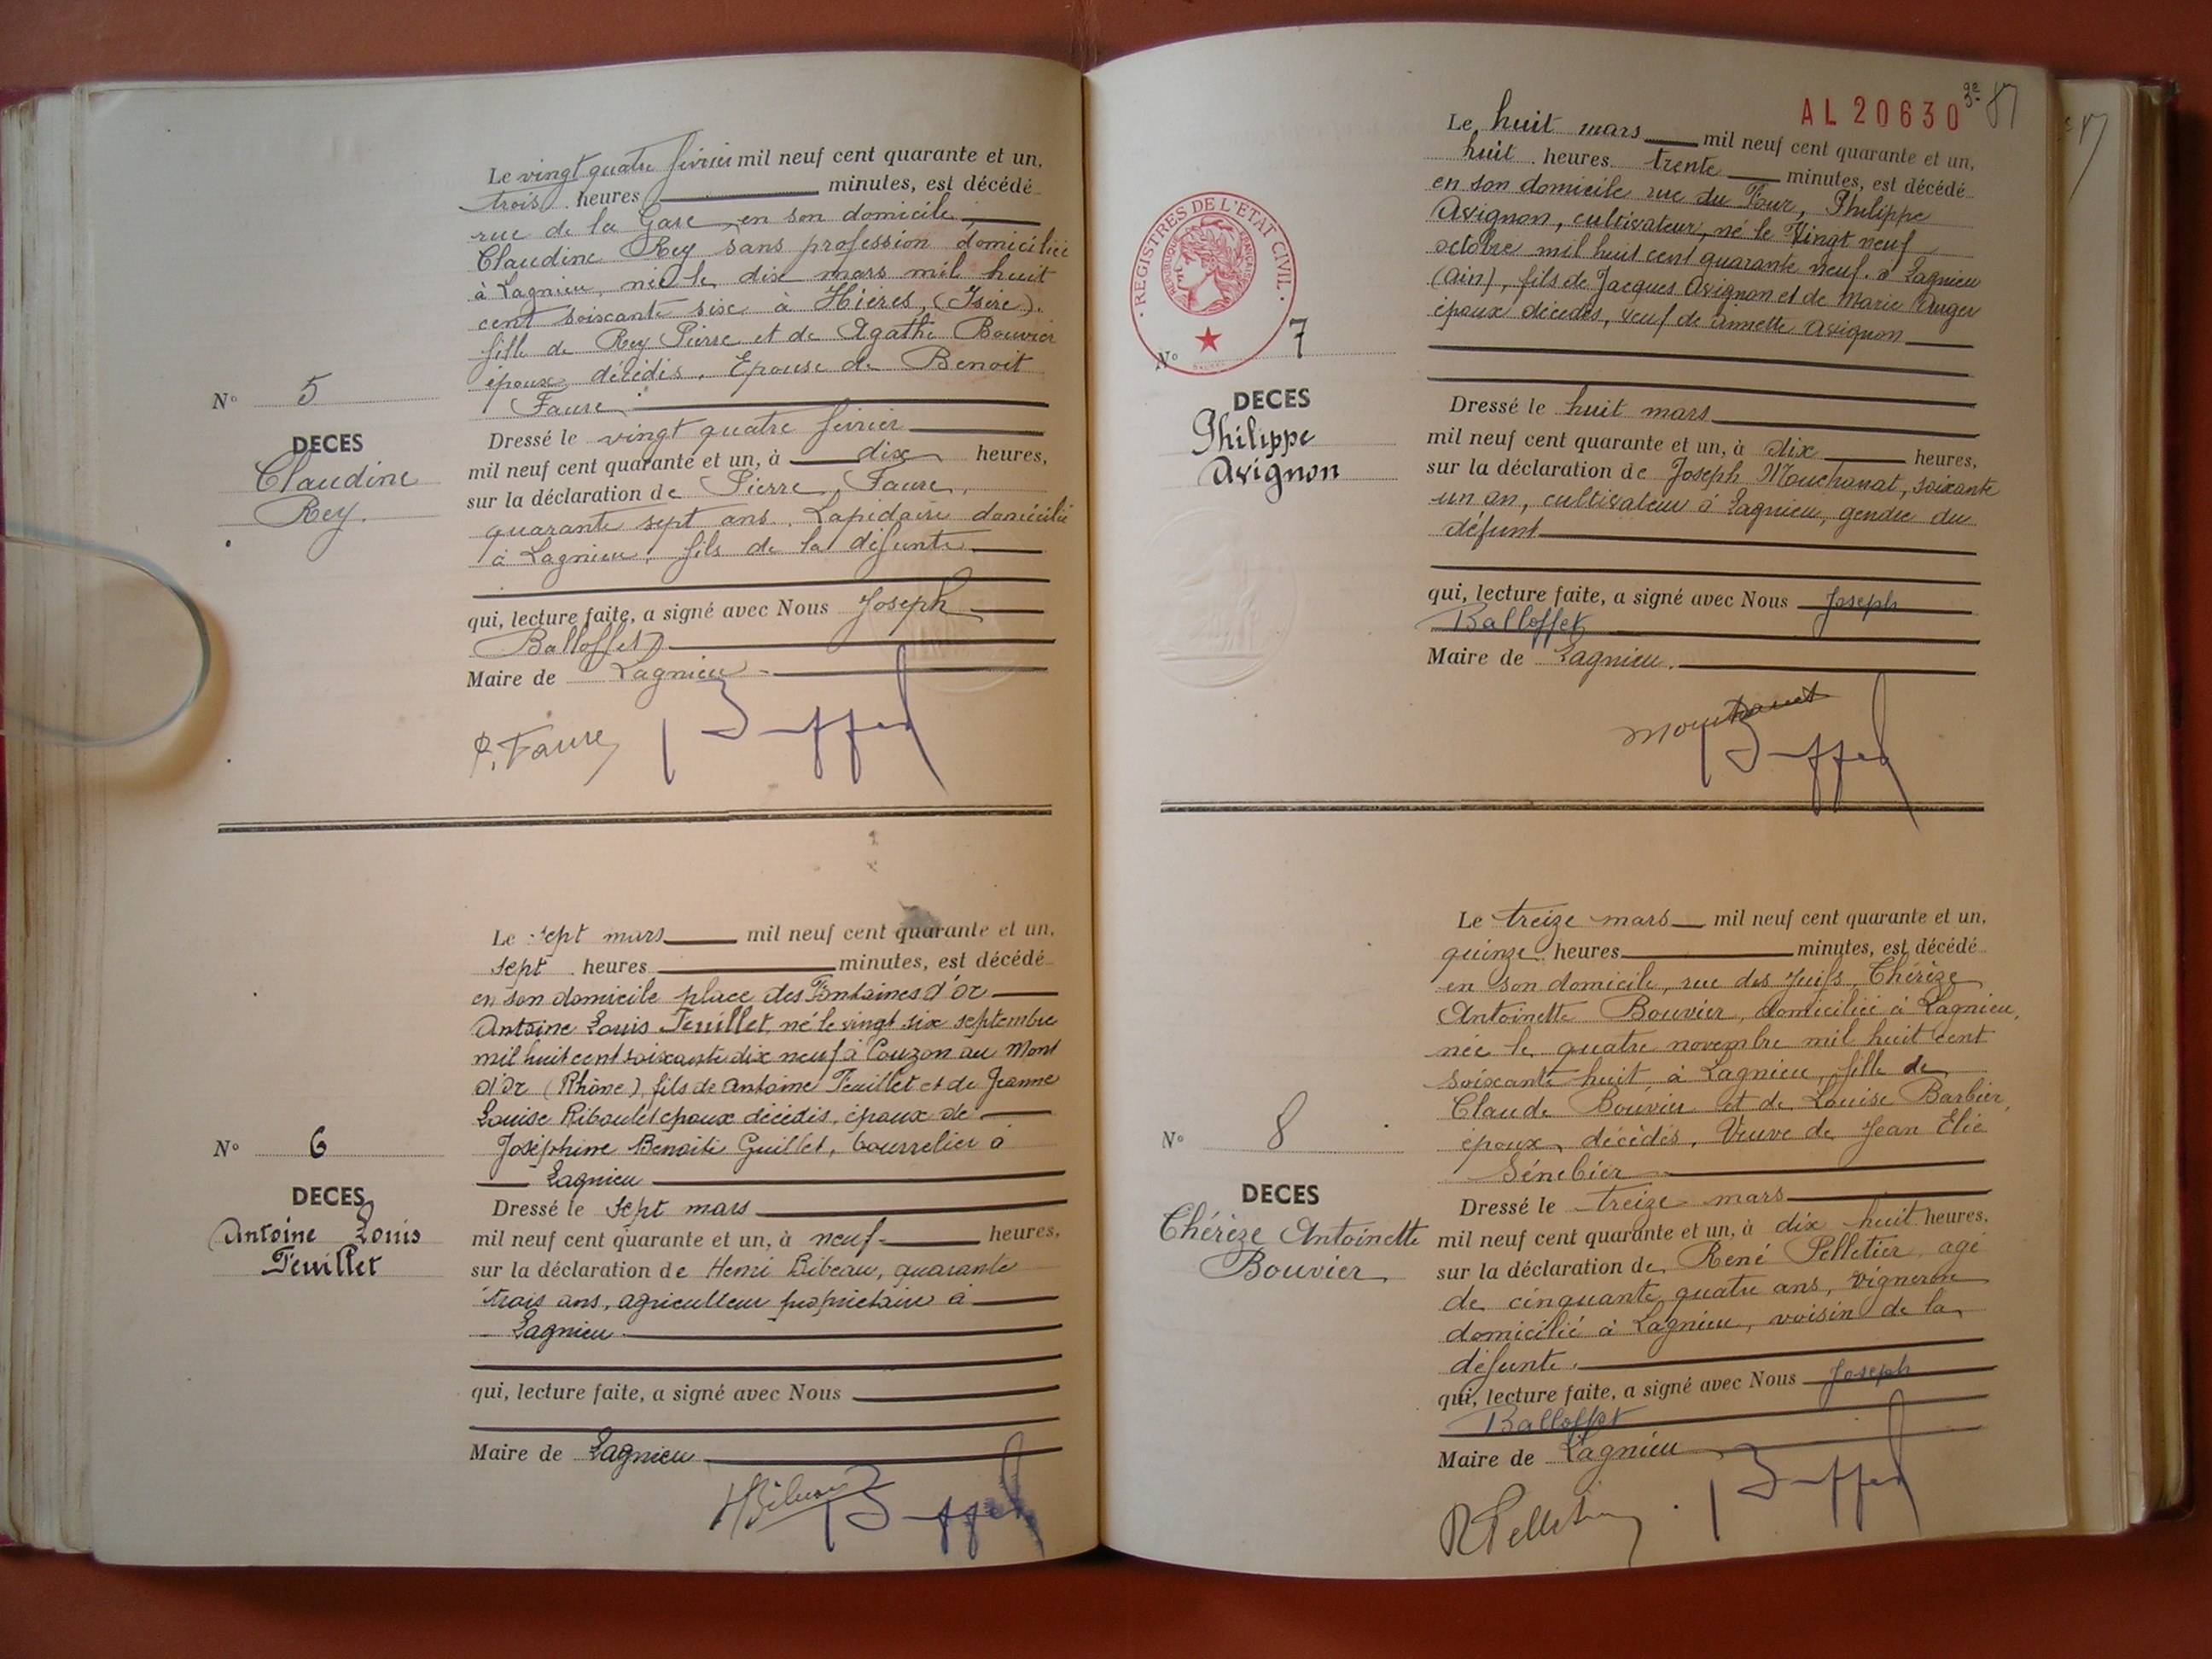 Le vingt quatre février mil neuf cent quarante et un,
trois heures minutes, est décédé
rue de la Gare, en son domicile,
Claudine Rey sans profession domiciliée
à Lagnieu, née le dix mars mil huit
cent soixante sixe à Hières, (Isère).
fille de Rey Pierre et de Agathe Bouvier
époux décédés. Epouse de Benoit
Faure.
N° 5
DECES
Claudine
Rey.
Dressé le vingt quatre février
mil neuf cent quarante et un, à dix heures,
sur la déclaration de Pierre Faure,
quarante sept ans. Lapidaire domicilié
à Lagnieu, fils de la défunte.
qui, lecture faite, a signé avec Nous Joseph
Balloffet
Maire de Lagnieu
P. Faure
Le sept mars mil neuf cent quarante et un,
sept heures minutes, est décédé
en son domicile place des Fontaines d'Or
Antoine Louis Feuillet, né le vingt six septembre
mil huit cent soixante dix neuf à Couzon au Mont
d'Or (Rhône), fils de Antoine Feuillet et de Jeanne
Louise Riboulet époux décédés, époux de
Joséphine Benoîte Guillet, bourrelier à
Lagnieu
N° 6
DECES
Antoine Louis
Feuillet
Dressé le sept mars
mil neuf cent quarante et un, à neuf heures,
sur la déclaration de Henri Bibeau, quarante
trois ans, agriculteur propriétaire à
Lagnieu.
qui, lecture faite, a signé avec Nous
Maire de Lagnieu
HBibeau
AL 20630
87
Le huit mars mil neuf cent quarante et un,
huit heures trente minutes, est décédé
en son domicile rue du Four, Philippe
Avignon, cultivateur, né le Vingt neuf
octobre mil huit cent quarante neuf à Lagnieu
(Ain), fils de Jacques Avignon et de Marie Auger
époux décédés, veuf de Annette Avignon
REGISTRES DE L'ETAT CIVIL
REPUBLIQUE FRANÇAISE
N° 7
DECES
Philippe
Avignon
Dressé le huit mars
mil neuf cent quarante et un, à dix heures,
sur la déclaration de Joseph Mouchanat, soixante
un an, cultivateur à Lagnieu, gendre du
défunt
qui, lecture faite, a signé avec Nous Joseph
Balloffet
Maire de Lagnieu.
Le treize mars mil neuf cent quarante et un,
quinze heures minutes, est décédé
en son domicile, rue des Juifs, Thérèze
Antoinette Bouvier, domiciliée à Lagnieu,
née le quatre novembre mil huit cent
soixante huit à Lagnieu, fille de
Claude Bouvier et de Louise Barbier,
époux décédés, Veuve de Jean Elie
Sénebier
N° 8
DECES
Thérèze Antoinette
Bouvier
Dressé le treize mars
mil neuf cent quarante et un, à dix huit heures,
sur la déclaration de René Pelletier, agé
de cinquante quatre ans, vigneron
domicilié à Lagnieu, voisin de la
défunte.
qui, lecture faite, a signé avec Nous Joseph
Balloffet
Maire de Lagnieu
R Pelletier